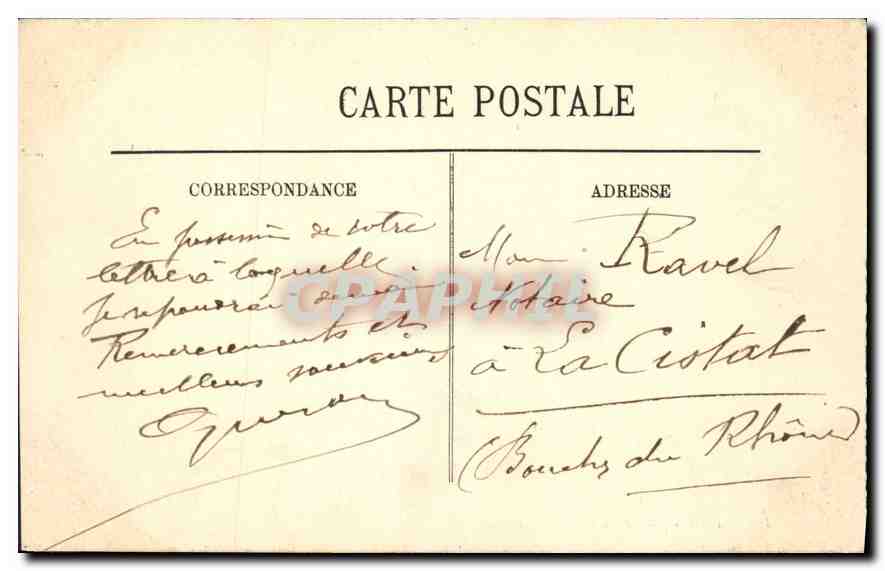 CARTE POSTALE
CORRESPONDANCE
En possession de votre
lettre à laquelle
je repondrai
Remerciements et
meilleurs souvenirs
ADRESSE
Ravel
Notaire
à La Ciotat
(Bouches du Rhône)
CPAPHIL